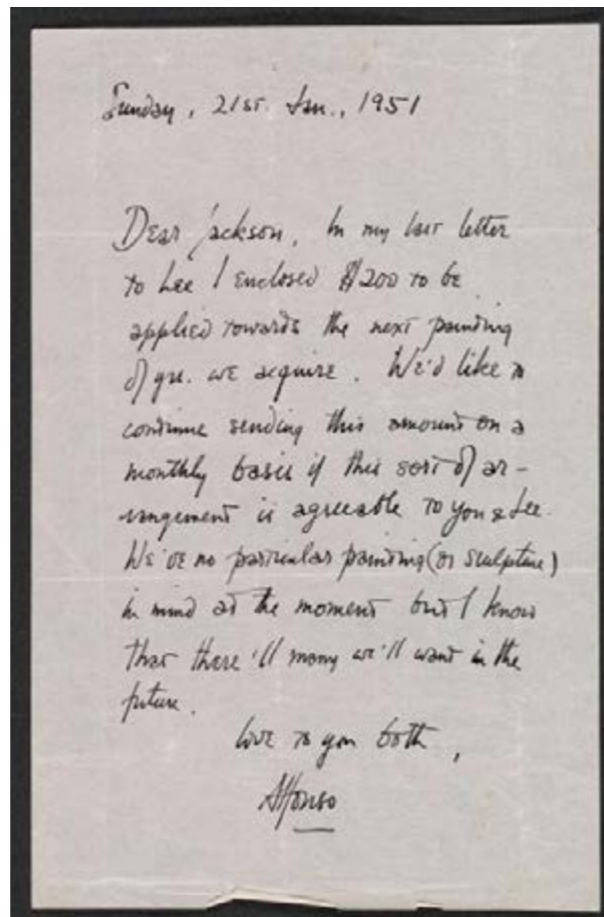 Sunday, 21st. Jan., 1951
Dear Jackson, In my last letter
to Lee I enclosed $200 to be
applied towards the next painting
of yrs. we acquire. We'd like to
continue sending this amount on a
monthly basis if this sort of ar-
rangement is agreeable to you & Lee.
We've no particular painting (or sculpture)
in mind at the moment but I know
that there'll many we'll want in the
future.
love to you both,
Alfonso